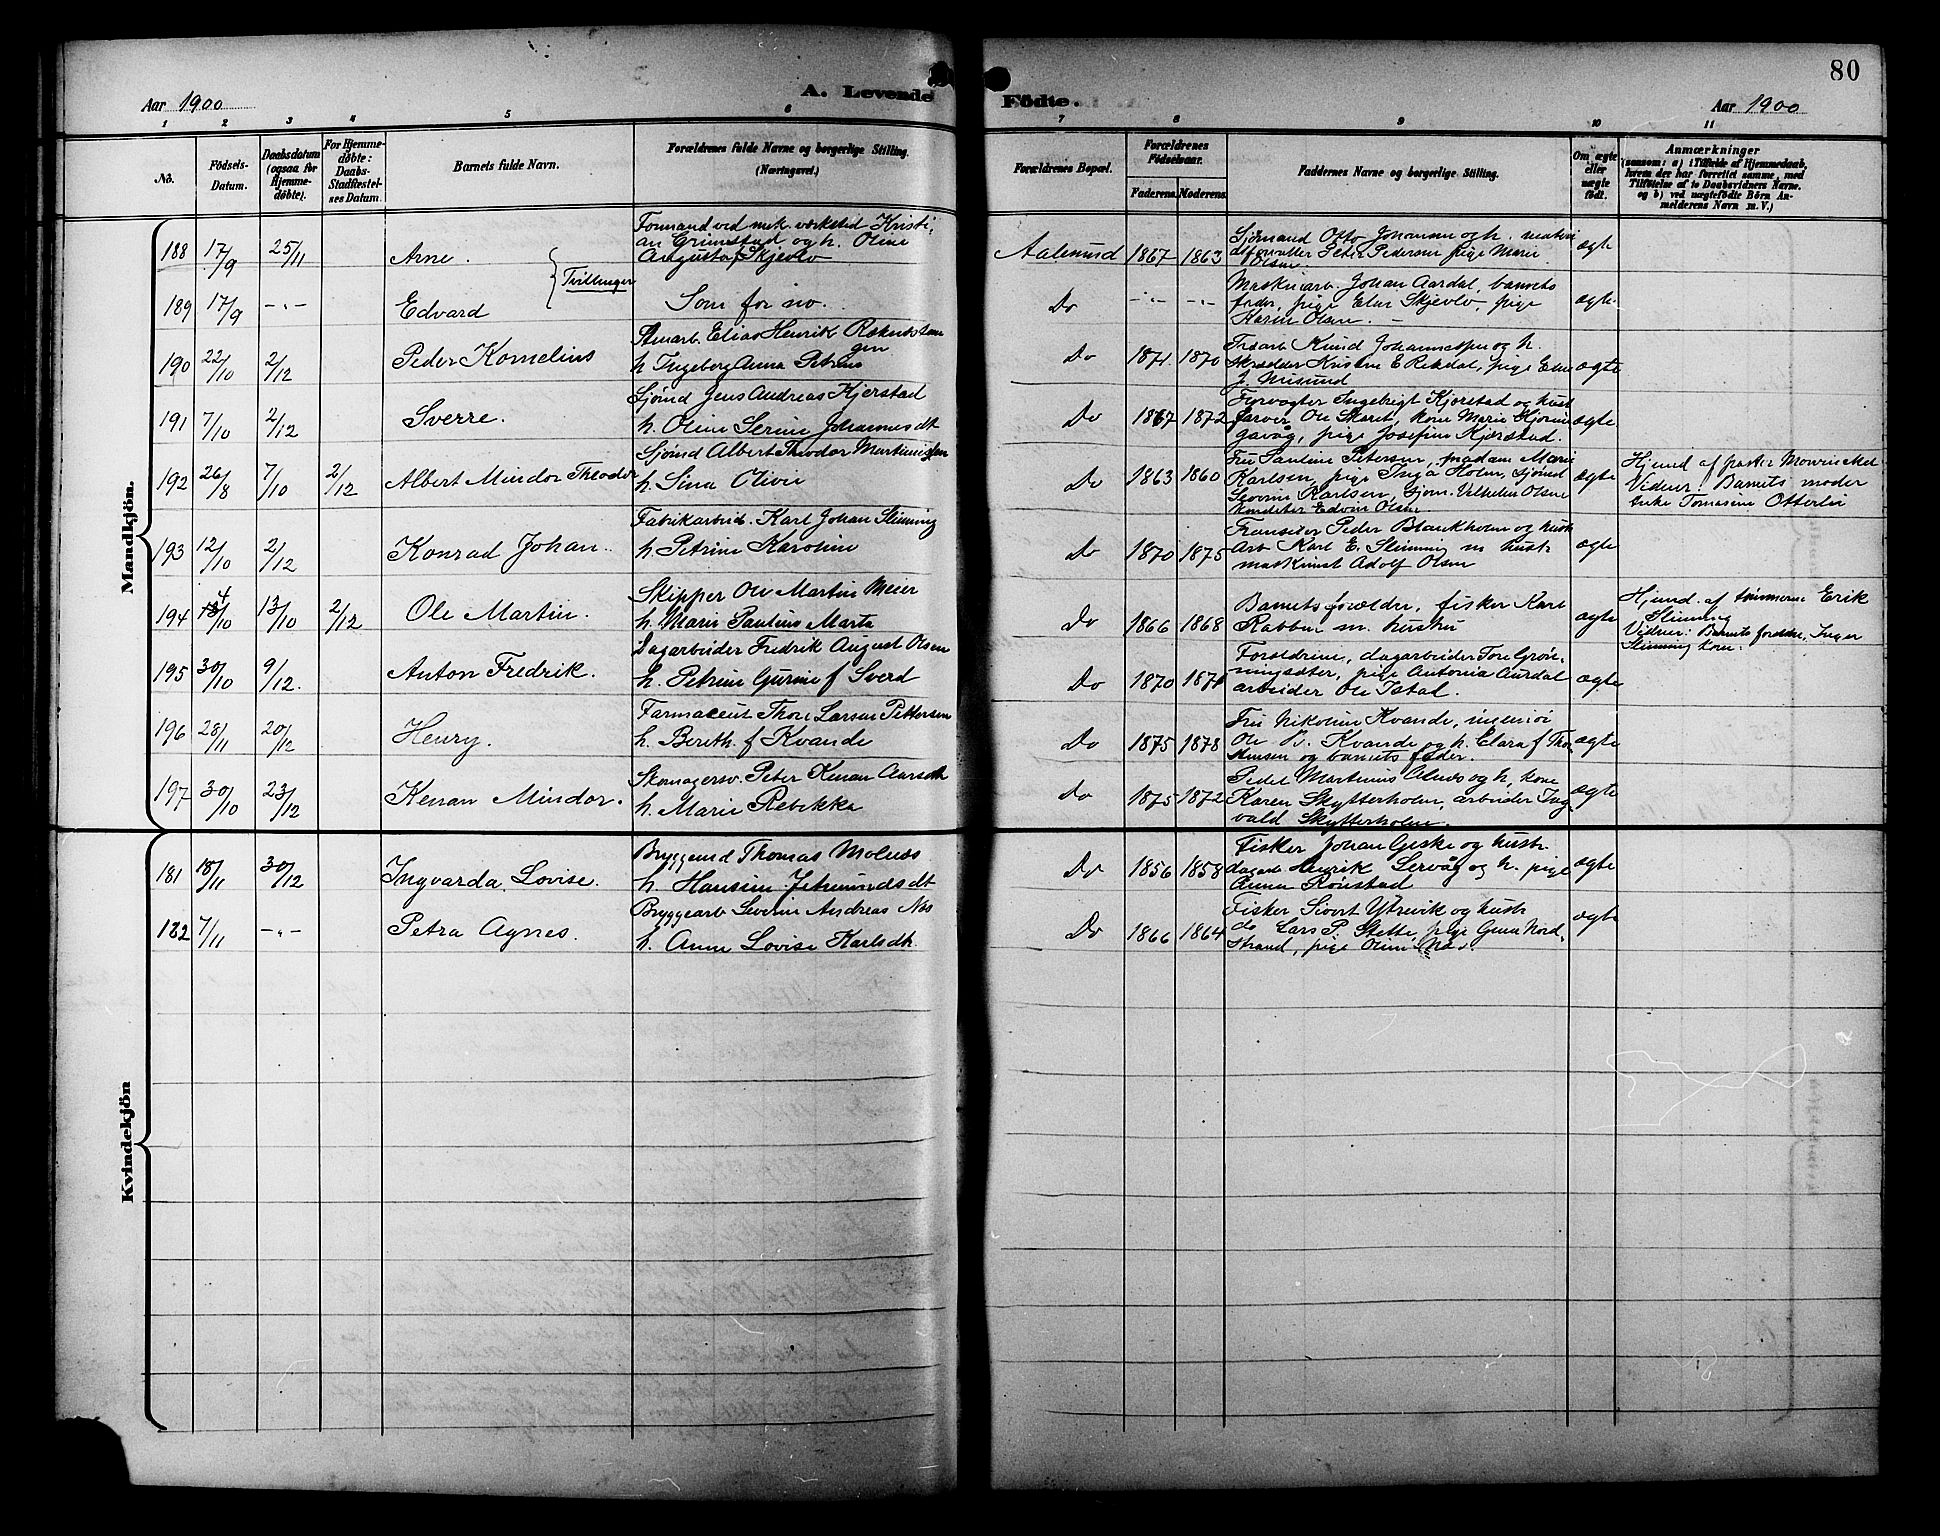 80
Aar 1900 A. Levende Födte. Aar 1900
1 2 3 4 5 6 7 8 9 10 11
No. Födsels-Datum. Daabsdatum (ogsaa for Hjemme-døbte). For Hjemme-døbte: Daabs-Stadfæstel-ses Datum. Barnets fulde Navn. Forældrenes fulde Navne og borgerlige Stilling. (Næringsvei.) Forældrenes Bopæl. Forældrenes Födselsaar. Faderens. Moderens. Faddernes Navne og borgerlige Stilling. Om ægte eller uægte födt. Anmærkninger (saasom: a) i Tilfælde af Hjemmedaab, hvem der har forrettet samme, med Tilføielse af to Daabsvidners Navne. og b) ved uægtefödte Börn An-melderens Navn m. V.)
Mandkjön.
188 17/9 25/11 Arne. Tvillinger
Formand ved mek. værksted Kristi-
an Grimstad og h. Oline
Augusta f. Skjevlo
Aalesund 1867 1863
Sjömand Otto Johansen og h.
Peter Pedersen, pige Marie
Olsen
ægte
189 17/9 -"- Edvard
Som for no.
Do -"- -"-
Maskinarb. Johan Aardal, barnets
fader, pige Skjevlo, pige
Karen Olsen. -
ægte
190 22/10 2/12 Peder Kornelius
Elias Henrik
h. Ingeborg Anna Petrine
Do 1871. 1870
Knud og h.
skrædder Kristen E. Rekdal, pige
J. Misund
ægte
191 7/10 2/12 Sverre.
Sjömd Jens Andreas Kjerstad
h. Oline Serine Johannesdt
Do 1867 1872
Ingebrigt Kjerstad og hust
farver Ole Skaret, kone Marie
pige Josefine Kjærstad.
ægte
192 26/8 7/10 2/12 Albert Mindor Theodor
Sjömd Albert Theodor Martinsen
h. Sina Olivie
Do 1863 1860
Fru Pauline Petersen, madam Marie
Karlsen, pige Inga Holm, sjömd
Severin Karlsen, Sjöm. Vilhelm Olsen
Edvin Olsen
ægte
Hjemd af
Vidner: Barnets moder
enke Tomasine Otterlei
193 12/10 2/12 Konrad Johan.
Fabrikarbeid. Karl Johan Slinning
h. Petrine Karoline
Do 1870 1875
Peder Blankholm og hust
Arb Karl E. Slinning m hust
maskinist Adolf Olsen
ægte
194 4/10 13/10 2/12 Ole Martin.
Skipper Ole Martin Meier
h. Marie Pauline Marta
Do 1866 1868
Barnets forælder, fisker Karl
Rabben m. hustru
ægte
Hjemd. af tømmerm Erik
Slinning
Vidner: Barnets forældre, Inger
Slinning
195 30/10 9/12. Anton Fredrik.
Dagarbeider Fredrik August Olsen
h. Petrine Gurine f Sverd
Do 1870 1871
Forældrene, dagarbeider Tore
pige Antonia Aurdal
arbeider Ole Talad.
ægte
196 28/11 20/12 Henry.
Farmaceut Thor Larsen Pettersen
h. Bereth. f Kvande
Do 1875 1878
Fru Nikoline Kvande, ingeniør
Ole B. Kvande og h. Clara f Tho-
og barnets fader.
ægte
197 30/10 23/12 Kenan Mindor.
Skomagersv. Peter Kenan
h. Marie Rebekka
Do 1875 1872
Martinus Alnes og h, kone
Karen Skytterholm, arbeider Ing-
vald Skytterholm.
ægte
Kvindekjön
181 18/11 30/12 Ingvarda Lovise.
Bryggemd Thomas Molnes
h. Hansine
Do 1856 1858
Fisker Johan Giske og hustr
dagarb. Henrik og h. pige
Anna Rönstad
ægte
182 7/11 -"- Petra Agnes.
Bryggearb Severin Andreas Nes
h. Anne Lovise Karlsdt.
Do 1866 1864
Fisker Sivert Ytrevik og hustr
do Lars P. Stette, pige Nord-
strand, pige
ægte